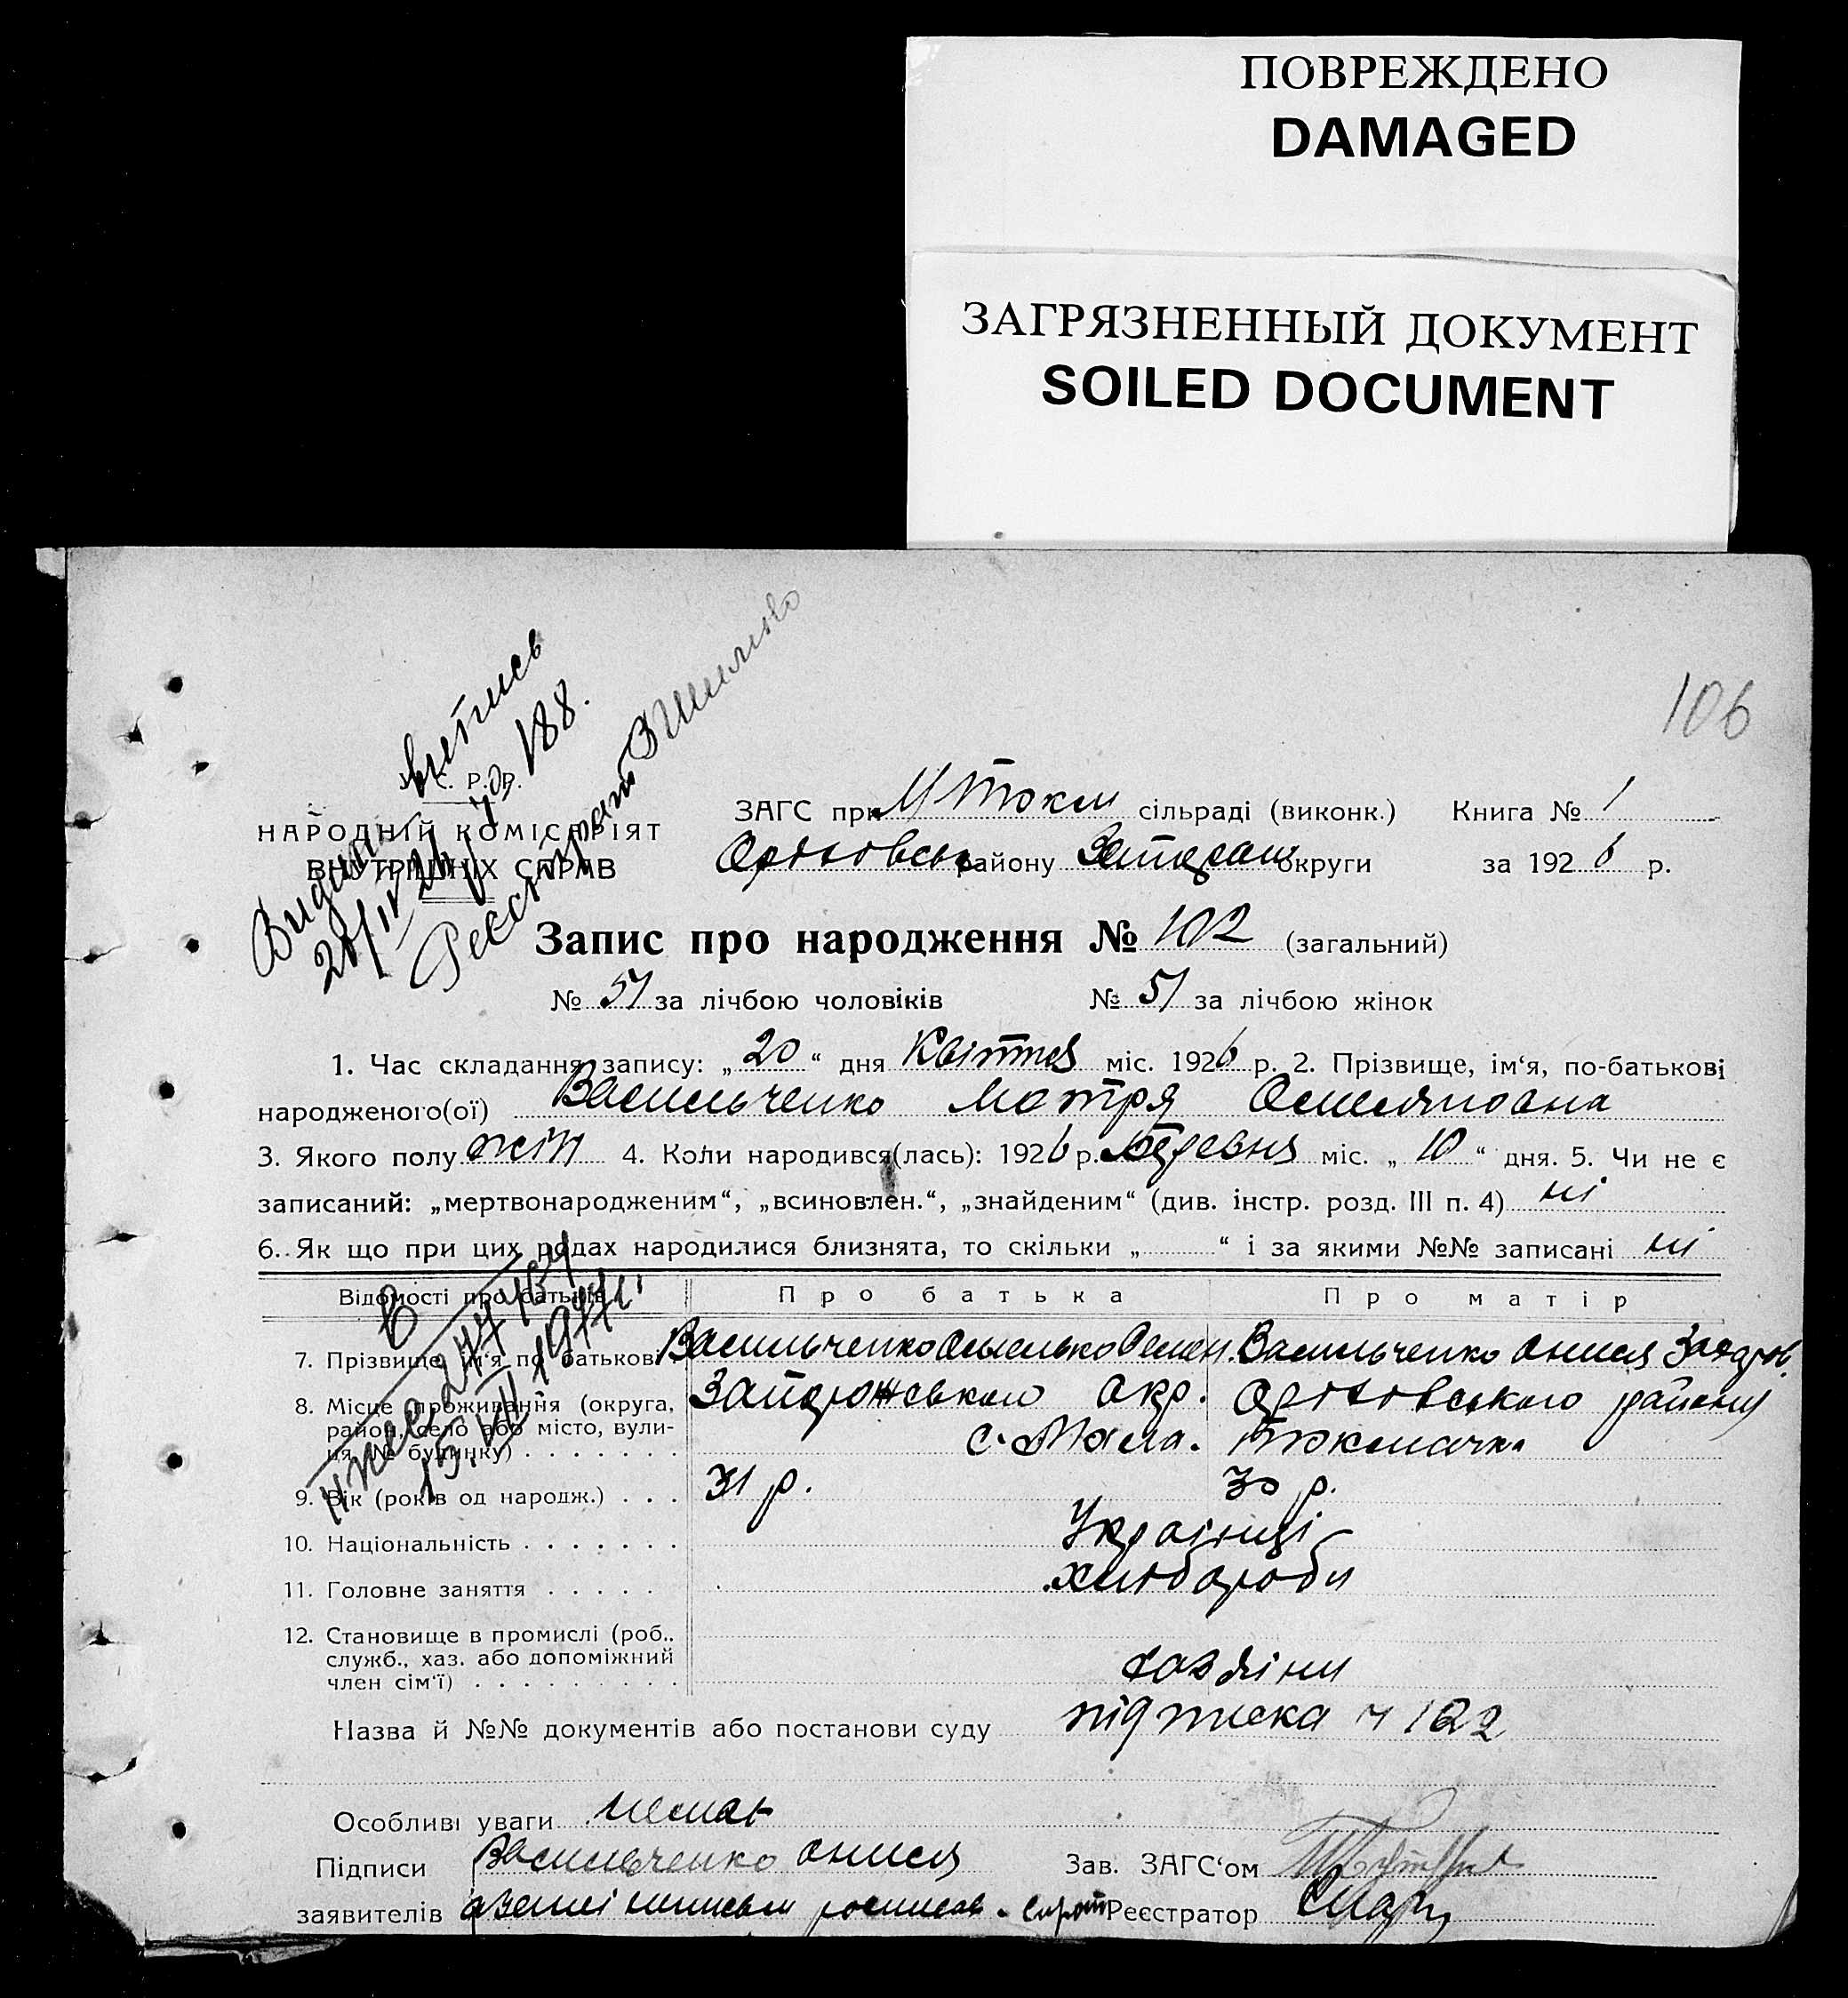 ПОВРЕЖДЕНО
DAMAGED
ЗАГРЯЗНЕННЫЙ ДОКУМЕНТ
SOILED DOCUMENT
106
випись
188.
Реєстратор
С. Р. Р.
НАРОДНІЙ КОМІСАРІЯТ
ВНУТРІШНІХ СПРАВ
ЗАГС при М Токм сільраді (виконк.) Книга № 1
району округи за 1926 р.
Запис про народження № 102 (загальний)
№ 51 за лічбою чоловіків № 51 за лічбою жінок
1. Час складання запису: „20“ дня Квітня міс. 1926 р. 2. Прізвище, ім‘я, по-батькові
народженого(ої) Васильченко Мотря
3. Якого полу жін 4. Коли народився(лась): 1926 р. міс. „10“ дня. 5. Чи не є
записаний: „мертвонародженим“, „всиновлен.“, „знайденим“ (див. інстр. розд. III п. 4) ні
6. Як що при цих родах народилися близнята, то скільки „ “ і за якими №№ записані ні
Відомості про батьків Про батька Про матір
7. Прізвище, ім‘я по батькові Васильченко Омелько Семен. Васильченко Онися
8. Місце проживання (округа, район, село або місто, вулиця, № будинку) окр. району
с. Мала. Токмачка
9. Вік (років од народж.) 31 р. 30 р.
10. Національність Українці
11. Головне заняття хлібороби
12. Становище в промислі (роб.,
служб., хаз. або допоміжний
член сім‘ї) хазяіни
Назва й №№ документів або постанови суду підписка ч 122
Особливі уваги немає
Підписи Васильченко Онися Зав. ЗАГС‘ом
заявителів Реєстратор